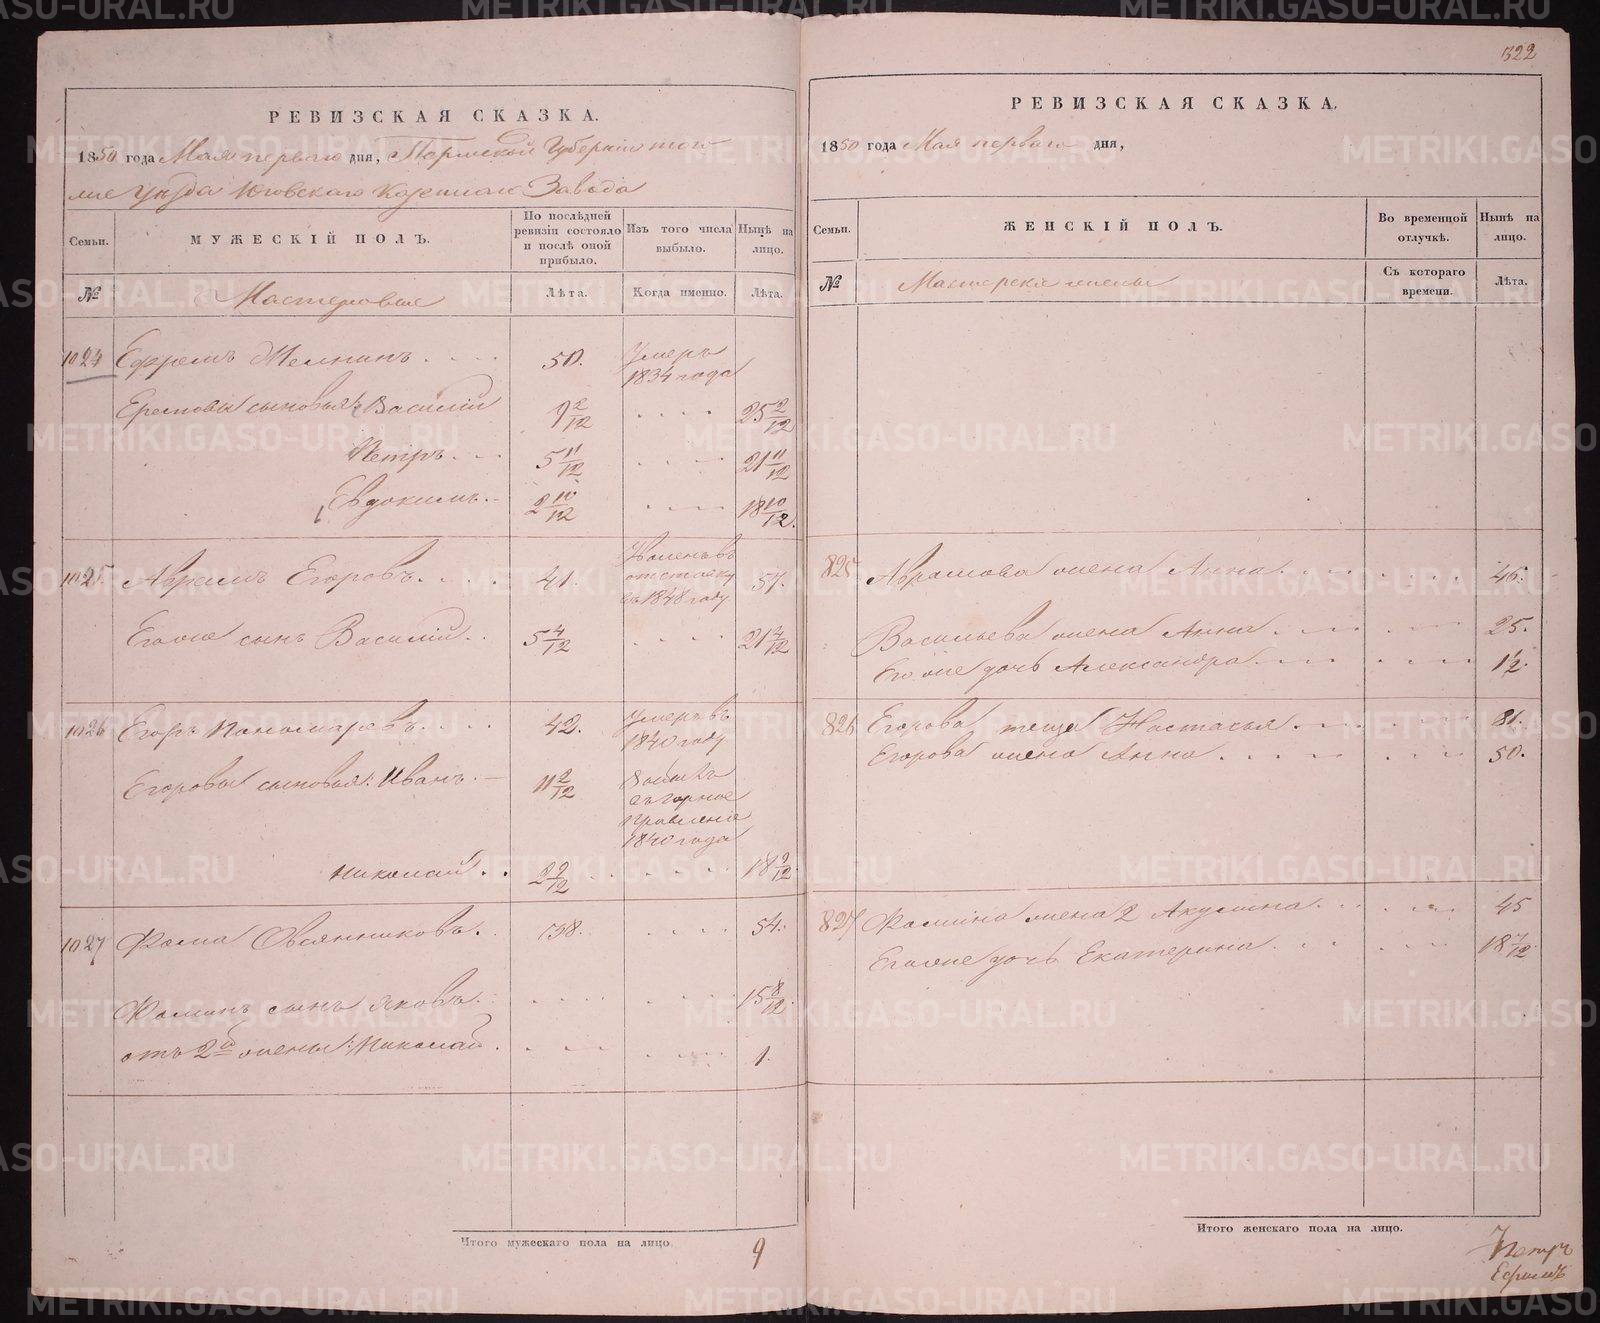 322
РЕВИЗСКАЯ СКАЗКА.
1850 года Мая перваго дня, Пермской Губернии того
же Уѣзда Юговскаго Казеннаго Завода
Семьи.
МУЖЕСКІЙ ПОЛЪ.
По послѣдней ревизіи состояло и послѣ оной прибыло.
Изъ того числа выбыло.
Нынѣ на лицо.
№
Мастеровые
Лѣта.
Когда именно.
Лѣта.
1024 Ефремъ 50. Умеръ
1834 года
сыновья: Василій 9 2/12 25 2/12
Петръ 5 11/12 21 11/12
Евдокимъ 2 10/12 18 10/12
1025 Аврамъ Егоровъ 41. 57.
отставку
въ 1848 году
Егоже сынъ Василій 5 4/12 21 4/12
1026 Егоръ Пономаревъ 42. Умеръ въ
1840 году
Егоровы сыновья: Иванъ 11 2/12
въ горное
правление
1840 года
Николай 2 9/12 18 9/12
1027 Фома Овсянниковъ. 38. 54.
Фоминъ сынъ Яковъ 15 8/12
отъ 2й жены: Николай 1.
Итого мужескаго пола на лицо 9
РЕВИЗСКАЯ СКАЗКА.
1850 года Мая перваго дня,
Семьи.
ЖЕНСКІЙ ПОЛЪ.
Во временной отлучкѣ.
Нынѣ на лицо.
№
Мастерскіе жены
Съ котораго времени.
Лѣта.
825 Аврамова жена Анна 46.
Васильева жена Анна 25.
Егоже дочь Александра 1/2.
826 Егорова теща Настасья 81.
Егорова жена Анна 50.
827 Фомина жена 2 Акулина 45
Егоже дочь Екатерина 18 7/12
Итого женскаго пола на лицо.
METRIKI.GASO-URAL.RU